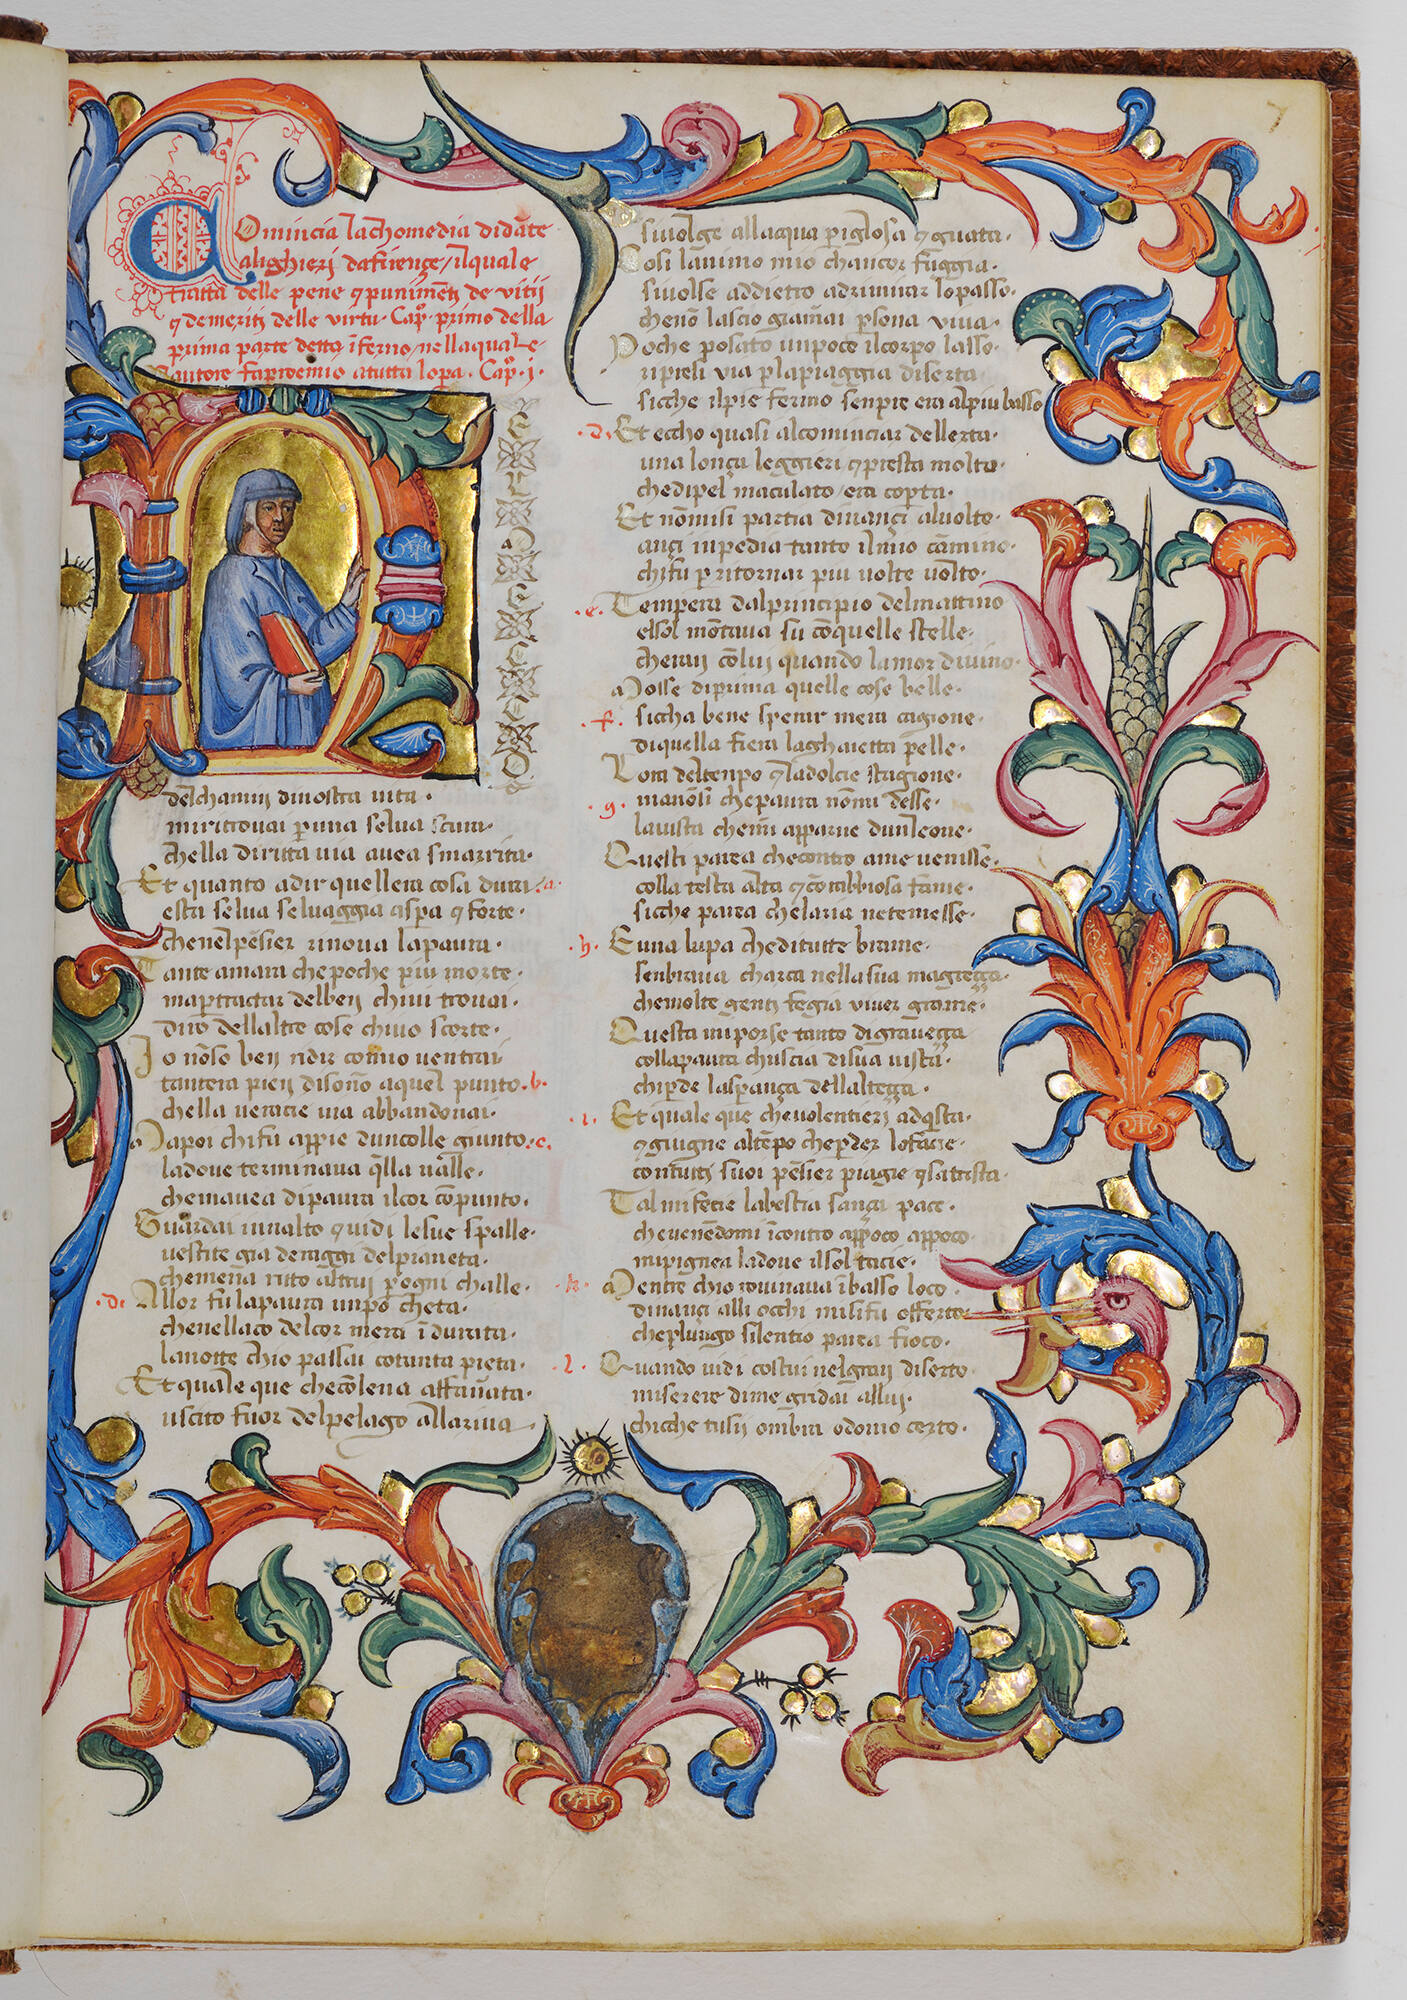 Comincia lachomedia didāte
alighierj dafirençe / ilquale
tratta delle pene ꝗ punimētj de vitij
ꝗ demeritj delle virtu · Capº · primo della
prima parte detta īferno / nellaquale
lautore fa proemio atutta lopa · Capº · j ·
N EL MEÇÇO
delchamin dinostra uita ·
miritrouai p una selua scura ·
chella diritta uia auea smarrita ·
Et quanto adir quellera cosa dura · a ·
esta selua seluaggia aspra ꝗ forte ·
chenelpēsier rinoua lapaura ·
Tante amara chepoche piu morte ·
ma p tractar delben chiui trouai
diro dellaltre cose chiuo scorte ·
Jo nōso ben ridir comio uentrai
tantera pien disōno aquel punto · b ·
chella ueracie uia abbandonai ·
Mapoi chifu appie duncolle giunto · c ·
ladoue terminaua q̄lla ualle ·
chemauea dipaura ilcor cōpunto ·
Guardai inalto ꝗ uidi lesue spalle ·
uestite gia deraggi delpianeta ·
chemena ritto altrui p ogni challe ·
· d · Allor fu lapaura unpo cheta ·
chenellaco delcor mera īdurata ·
lanotte chio passai cotanta pieta ·
Et quale que checōlena affan̄ata ·
uscito fuor delpelago allariua
siuolge allacqua p igliosa ꝗ guata ·
Cosi lanimo mio chancor fuggia ·
siuolse addietro adrimirar lopasso ·
chenō lascio giam̄ai p sona viua ·
Poche posato unpoco ilcorpo lasso ·
ripresi via p lapiaggia diserta
sicche ilpie fermo senpre era alpiu basso
· d · Et eccho quasi alcominciar dellerta ·
una lonça leggieri ꝗ presta molto
chedipel maculato / era cop̄ta ·
Et nōmisi partia dinançi aluolto ·
ançi inpedia tanto ilmio cāmino ·
chifu p ritornar piu uolte uolto ·
· e · Tempera dalprincipio delmattino
elsol mōtaua su cōquelle stelle ·
cheran cōlui quando lamor diuino ·
Mosse diprima quelle cose belle ·
· f · sicha bene sperar mera cagione ·
diquella fiera laghaietta pelle ·
Lora deltenpo ꝗ ladolcie stagione ·
· g · manōsi chepaura nōmi desse ·
lauista chemi apparue dunleone ·
Questi parea checontro ame uenisse ·
colla testa alta ꝗ cō rabbiosa fame ·
sicche parea chelaria netemesse ·
· h · Euna lupa cheditutte brame ·
senbiaua charca nellasua magreçça ·
chemolte gentj fegia viuer grame ·
Questa mi porse tanto digraueçça
collapaura chuscia disua uista ·
chi p̄de las p ança dellalteçça ·
· i · Et quale que chēuolentierj adq̄sta ·
ꝗ giugne altēpo che p̄der lofacie ·
contuttj suoi pēsier piagie ꝗ sattrista ·
Tal mifecie labestia sança pace ·
cheuenēdomi īcontro appoco appoco ·
mipignea ladoue ilsol tacie ·
· k · Mentre chio rouinaua ībasso loco ·
dinançi alli occhi misifu offerto ·
che p lungo silentio parea fioco ·
· l · Quando uidi costui nelgran diserto ·
miserere dime gridai allui ·
chicche tusij ombra odomo certo ·